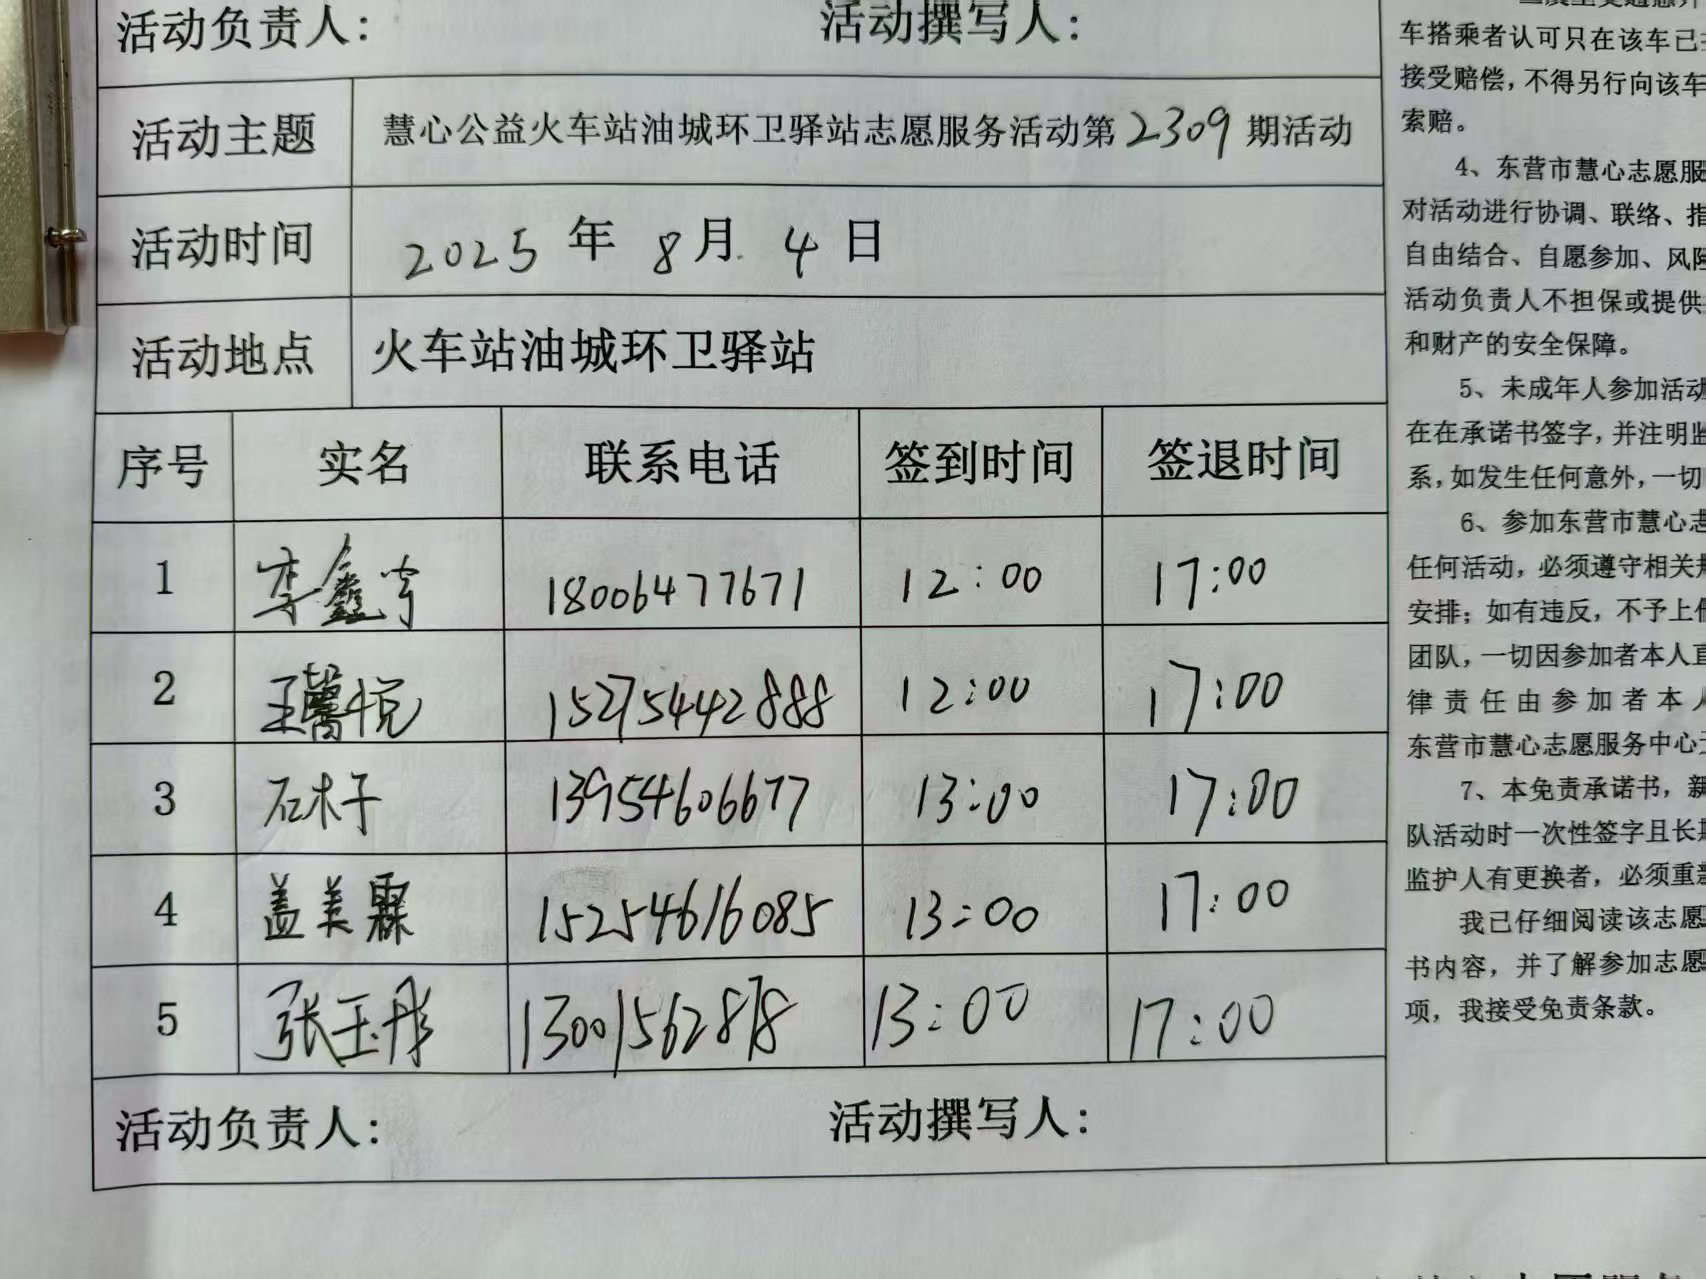 活动负责人： 活动撰写人：
活动主题 慧心公益火车站油城环卫驿站志愿服务活动第2309期活动
活动时间 2025年8月4日
活动地点 火车站油城环卫驿站
序号 实名 联系电话 签到时间 签退时间
1 李鑫宇 18006477671 12:00 17:00
2 王馨悦 15275442888 12:00 17:00
3 石木子 13954606677 13:00 17:00
4 盖美霖 15254616085 13:00 17:00
5 张玉彤 13001562878 13:00 17:00
活动负责人： 活动撰写人：
车搭乘者认可只在该车已
接受赔偿，不得另行向该车
索赔。
4、东营市慧心志愿服
对活动进行协调、联络、指
自由结合、自愿参加、风险
活动负责人不担保或提供
和财产的安全保障。
5、未成年人参加活动
在在承诺书签字，并注明监
系，如发生任何意外，一切
6、参加东营市慧心志
任何活动，必须遵守相关规
安排；如有违反，不予上
团队，一切因参加者本人直
律责任由参加者本人
东营市慧心志愿服务中心
7、本免责承诺书，新
队活动时一次性签字且长期
监护人有更换者，必须重新
我已仔细阅读该志愿
书内容，并了解参加志愿
项，我接受免责条款。